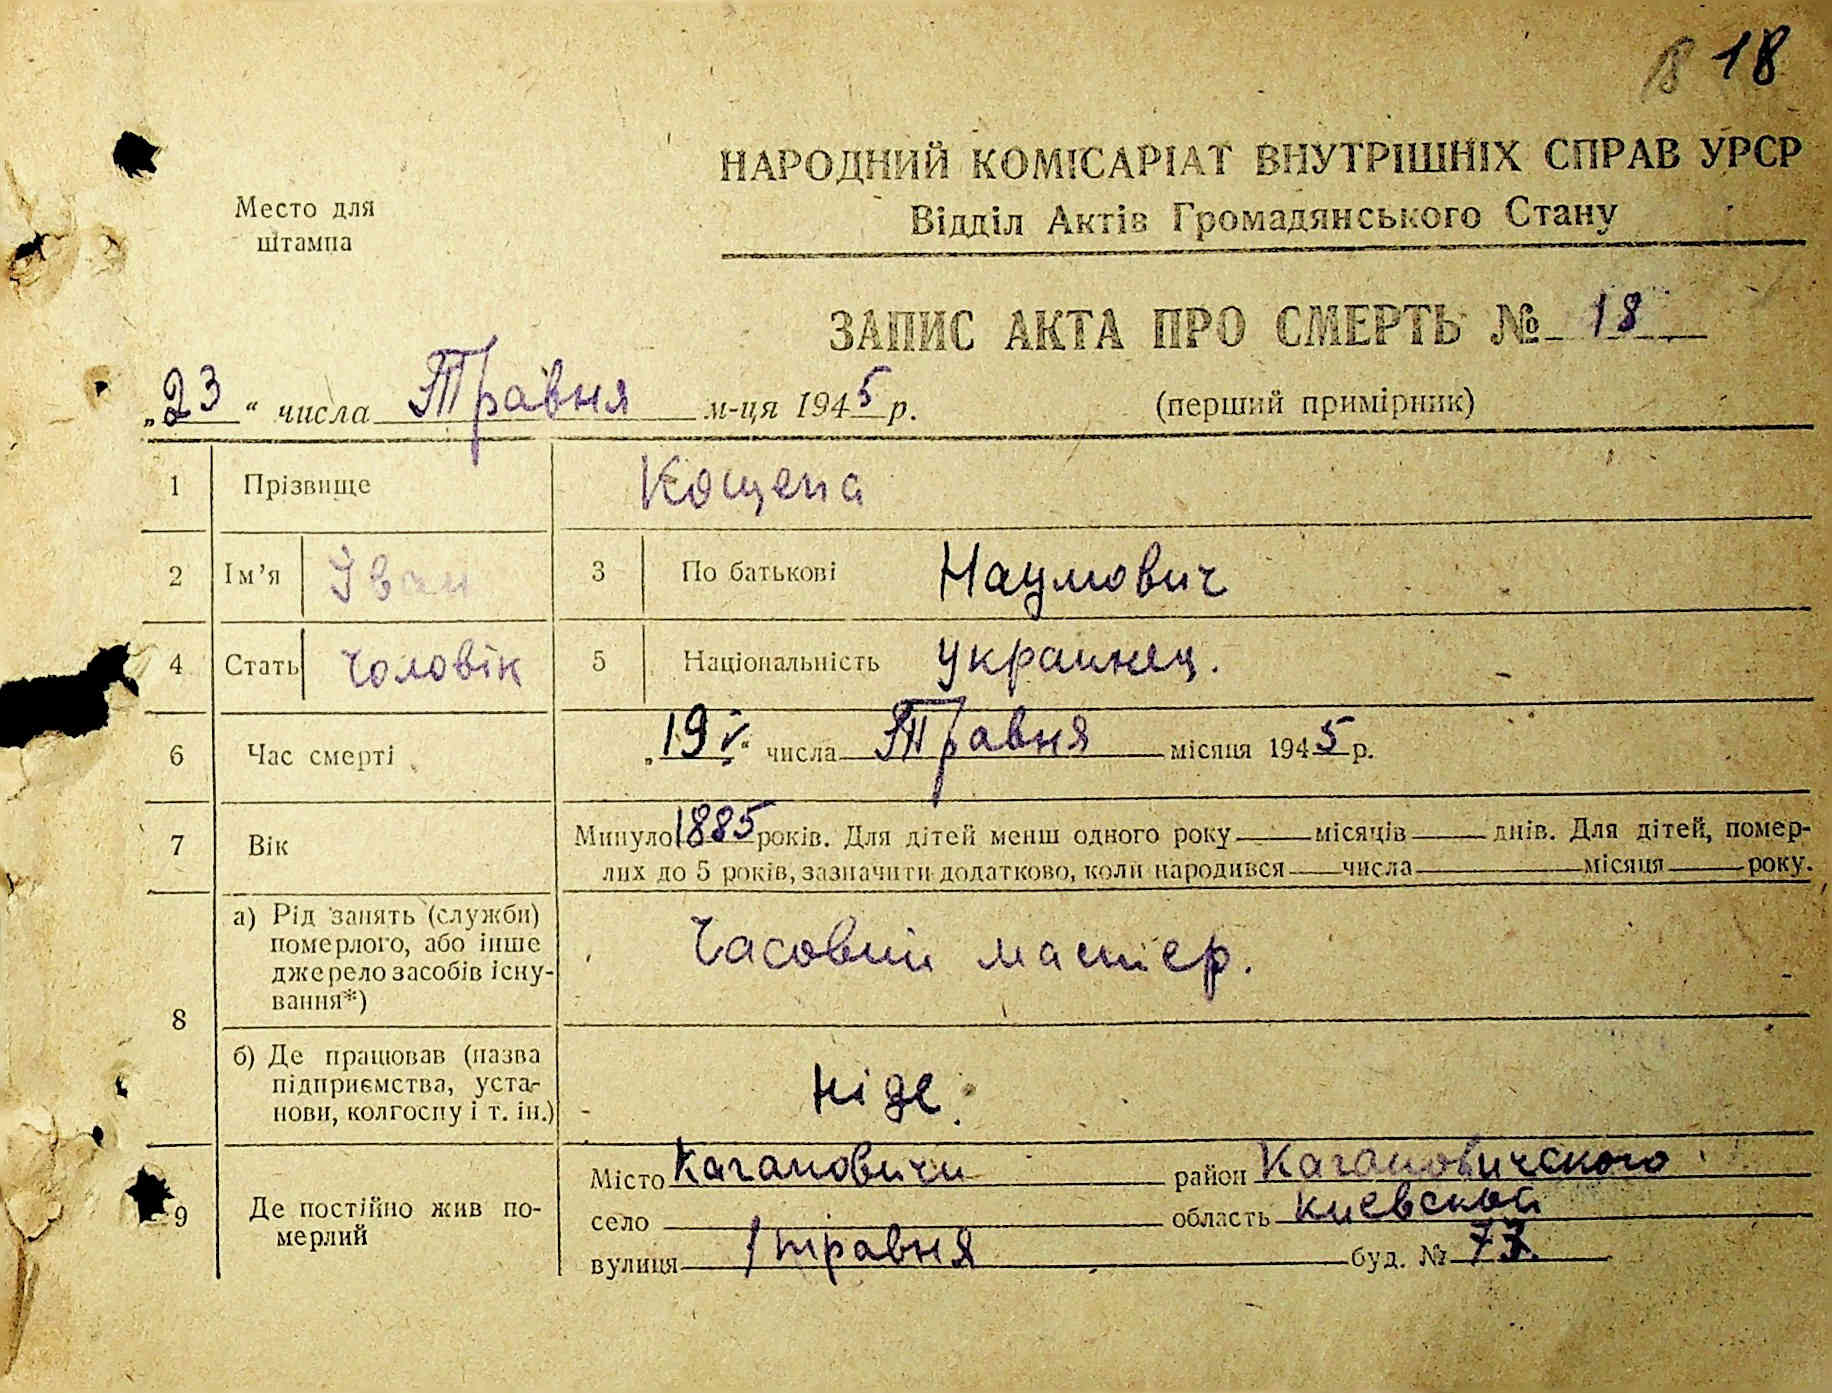 В 18
НАРОДНИЙ КОМІСАРІАТ ВНУТРІШНІХ СПРАВ УРСР
Відділ Актів Громадянського Стану
Место для
штампа
ЗАПИС АКТА ПРО СМЕРТЬ № 18
„23“ числа Травня м-ця 1945 р.
(перший примірник)
1 Прізвище Кощепа
2 Ім’я Іван 3 По батькові Наумович
4 Стать чоловік 5 Національність украинец.
6 Час смерті „19“ числа Травня місяця 1945 р.
7 Вік Минуло 1885 років. Для дітей менш одного року місяців днів. Для дітей, помер-
лих до 5 років, зазначити додатково, коли народився числа місяця року.
8 а) Рід занять (служби)
померлого, або інше
джерело засобів існу-
вання*)
Часовий мастєр.
б) Де працював (назва
підприємства, уста-
нови, колгоспу і т. ін.)
ніде.
9 Де постійно жив по-
мерлий
Місто Кагановичи район Кагановичского
село область Киевской
вулиця 1 травня буд. № 73.